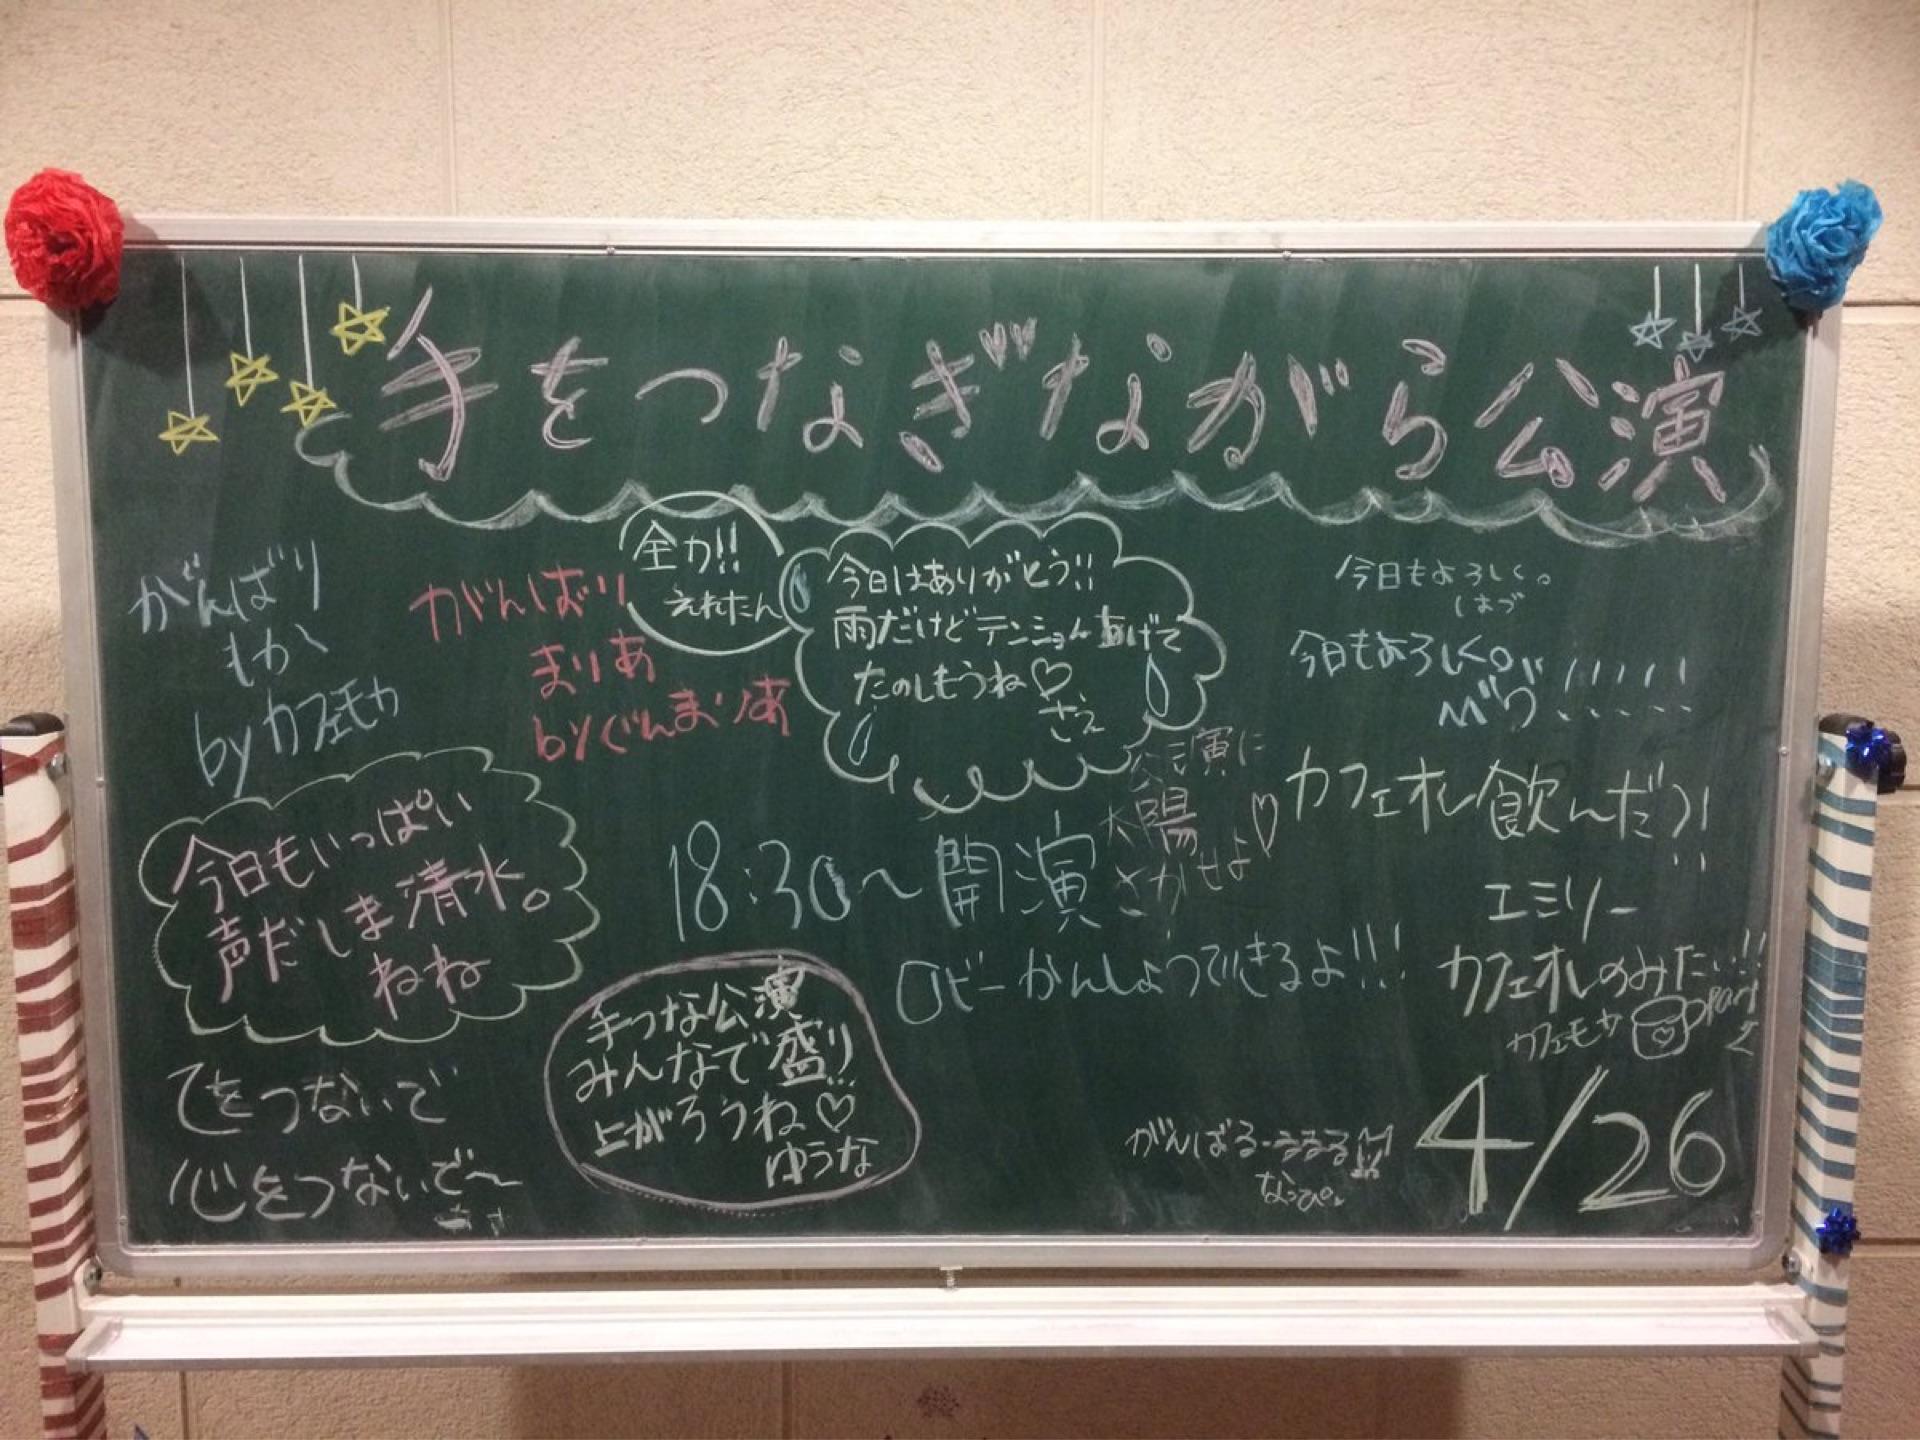 手をつなぎながら公演
がんばり
もか
byカフェモカ
がんばり
まりあ
byぐんまりあ
全力!!
えれたん
今日はありがとう!!
雨だけどテンション上げて
たのしもうね♡
さえ
今日もよろしく。
はづ
今日もよろしく。
カフェオレ飲んだ
エミリー
カフェオレのみたい!!
カフェモカ
Part
2
公演に
太陽
さかせよ♡
18:30〜開演
ロビーかんしょうできるよ!!!
今日もいっぱい
声だしま清水。
ねね
手つな公演
みんなで盛り
上がろうね♡
ゆうな
てをつないで
心をつないで〜
がんばるーぅぅるる
なっぴ。
4/26